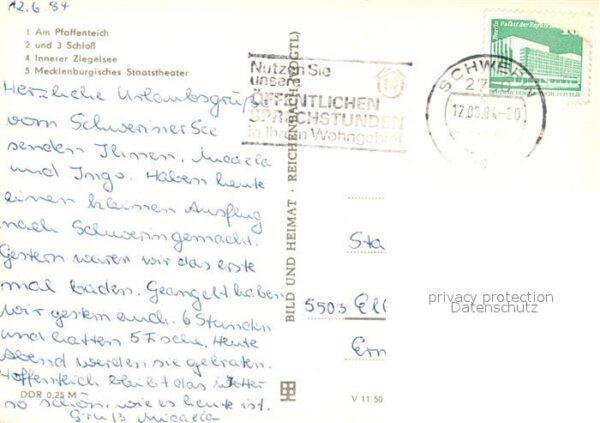 12.6.84
1 Am Pfaffenteich
2 und 3 Schloß
4 Innerer Ziegelsee
5 Mecklenburgisches Staatstheater
Herzliche Urlaubsgrüße
vom Schweriner See
senden Ihnen, Micaela
und Ingo. Haben heute
einen kleinen Ausflug
nach Schwerin gemacht.
Gestern waren wir das erste
mal baden. Geangelt haben
wir gestern auch. 6 Stunden
und hatten 5 Fische. Heute
Abend werden sie gebraten.
Hoffentlich bleibt das Wetter
so schön, wie es heute ist.
Gruß Micaela
DDR 0,25 M
BILD UND HEIMAT · REICHENBACH (VOGTL)
V 11 50
Nutzen Sie
unsere
ÖFFENTLICHEN
SPRECHSTUNDEN
in Ihrem Wohngebiet
SCHWERIN
12.06.84-20
Sta
5503 Ell
Ern
privacy protection
Datenschutz